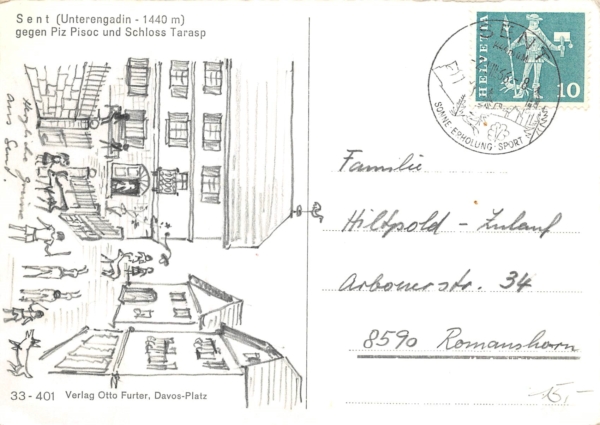 Sent (Unterengadin - 1440 m)
gegen Piz Pisoc und Schloss Tarasp
Herzliche Grüsse
aus Sent!
33 - 401 Verlag Otto Furter, Davos-Platz
SENT
SONNE · ERHOLUNG · SPORT
HELVETIA
10
Familie
Hiltpold - Zulauf
Arbonerstr. 34
8590 Romanshorn
15,-